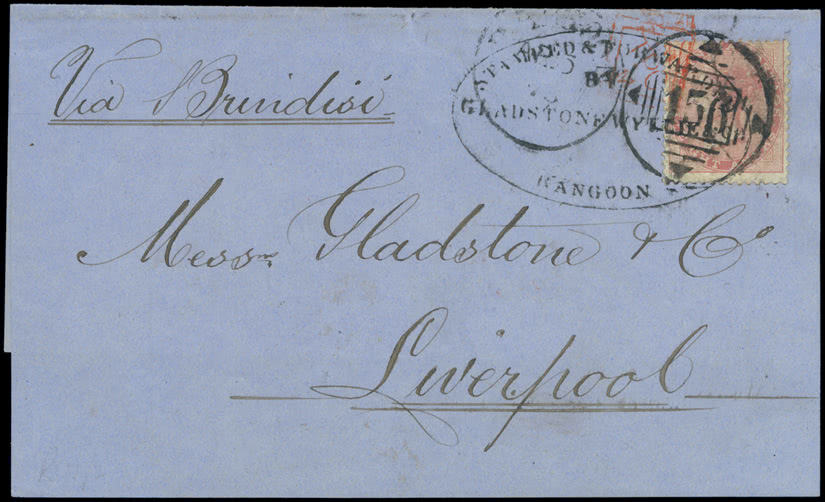 Via Brindisi
STAMPED & FORWARDED
BY
GLADSTONE WYLLIE & Co
RANGOON
156
Messrs Gladstone & Co
Liverpool